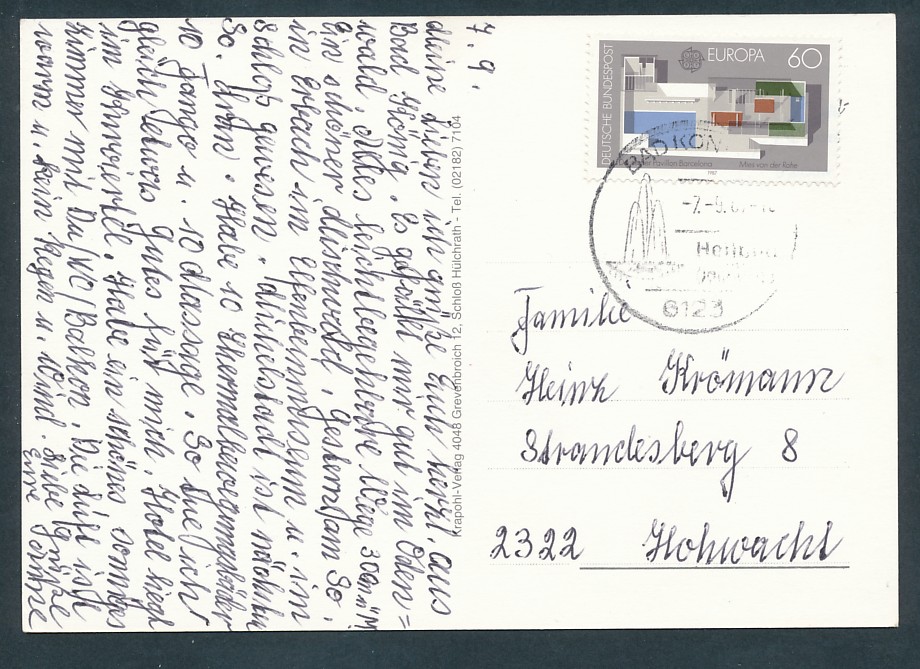 7. 9.
Meine Lieben ich grüße Euch herzl. aus
Bad König. Es gefällt mir gut im Oden=
wald. Alles leicht begehbare Wege 300 m ü M
Ein schöner Mischwald. Gestern am So.
in Erbach im Elfenbeinmuseum u. im
Schloß gewesen. Michelstadt ist nächsten
So. dran. Habe 10 Thermalbewegungsbäder
10 Fango u. 10 Massage. So tue ich
gleich etwas Gutes für mich. Hotel liegt
im Kurviertel. Habe ein schönes sonniges
Zimmer mit Du/WC/Balkon. Die Luft ist
warm u. kein Regen u. Wind. Liebe Grüße
Eure
Krapohl-Verlag 4048 Grevenbroich 12, Schloß Hülchrath - Tel. (02182) 7104
DEUTSCHE BUNDESPOST
EUROPA 60
Pavillon Barcelona
Mies van der Rohe
1987
BAD KÖN
6123
Familie
Heinz Krömann
Strandesberg 8
2322 Hohwacht